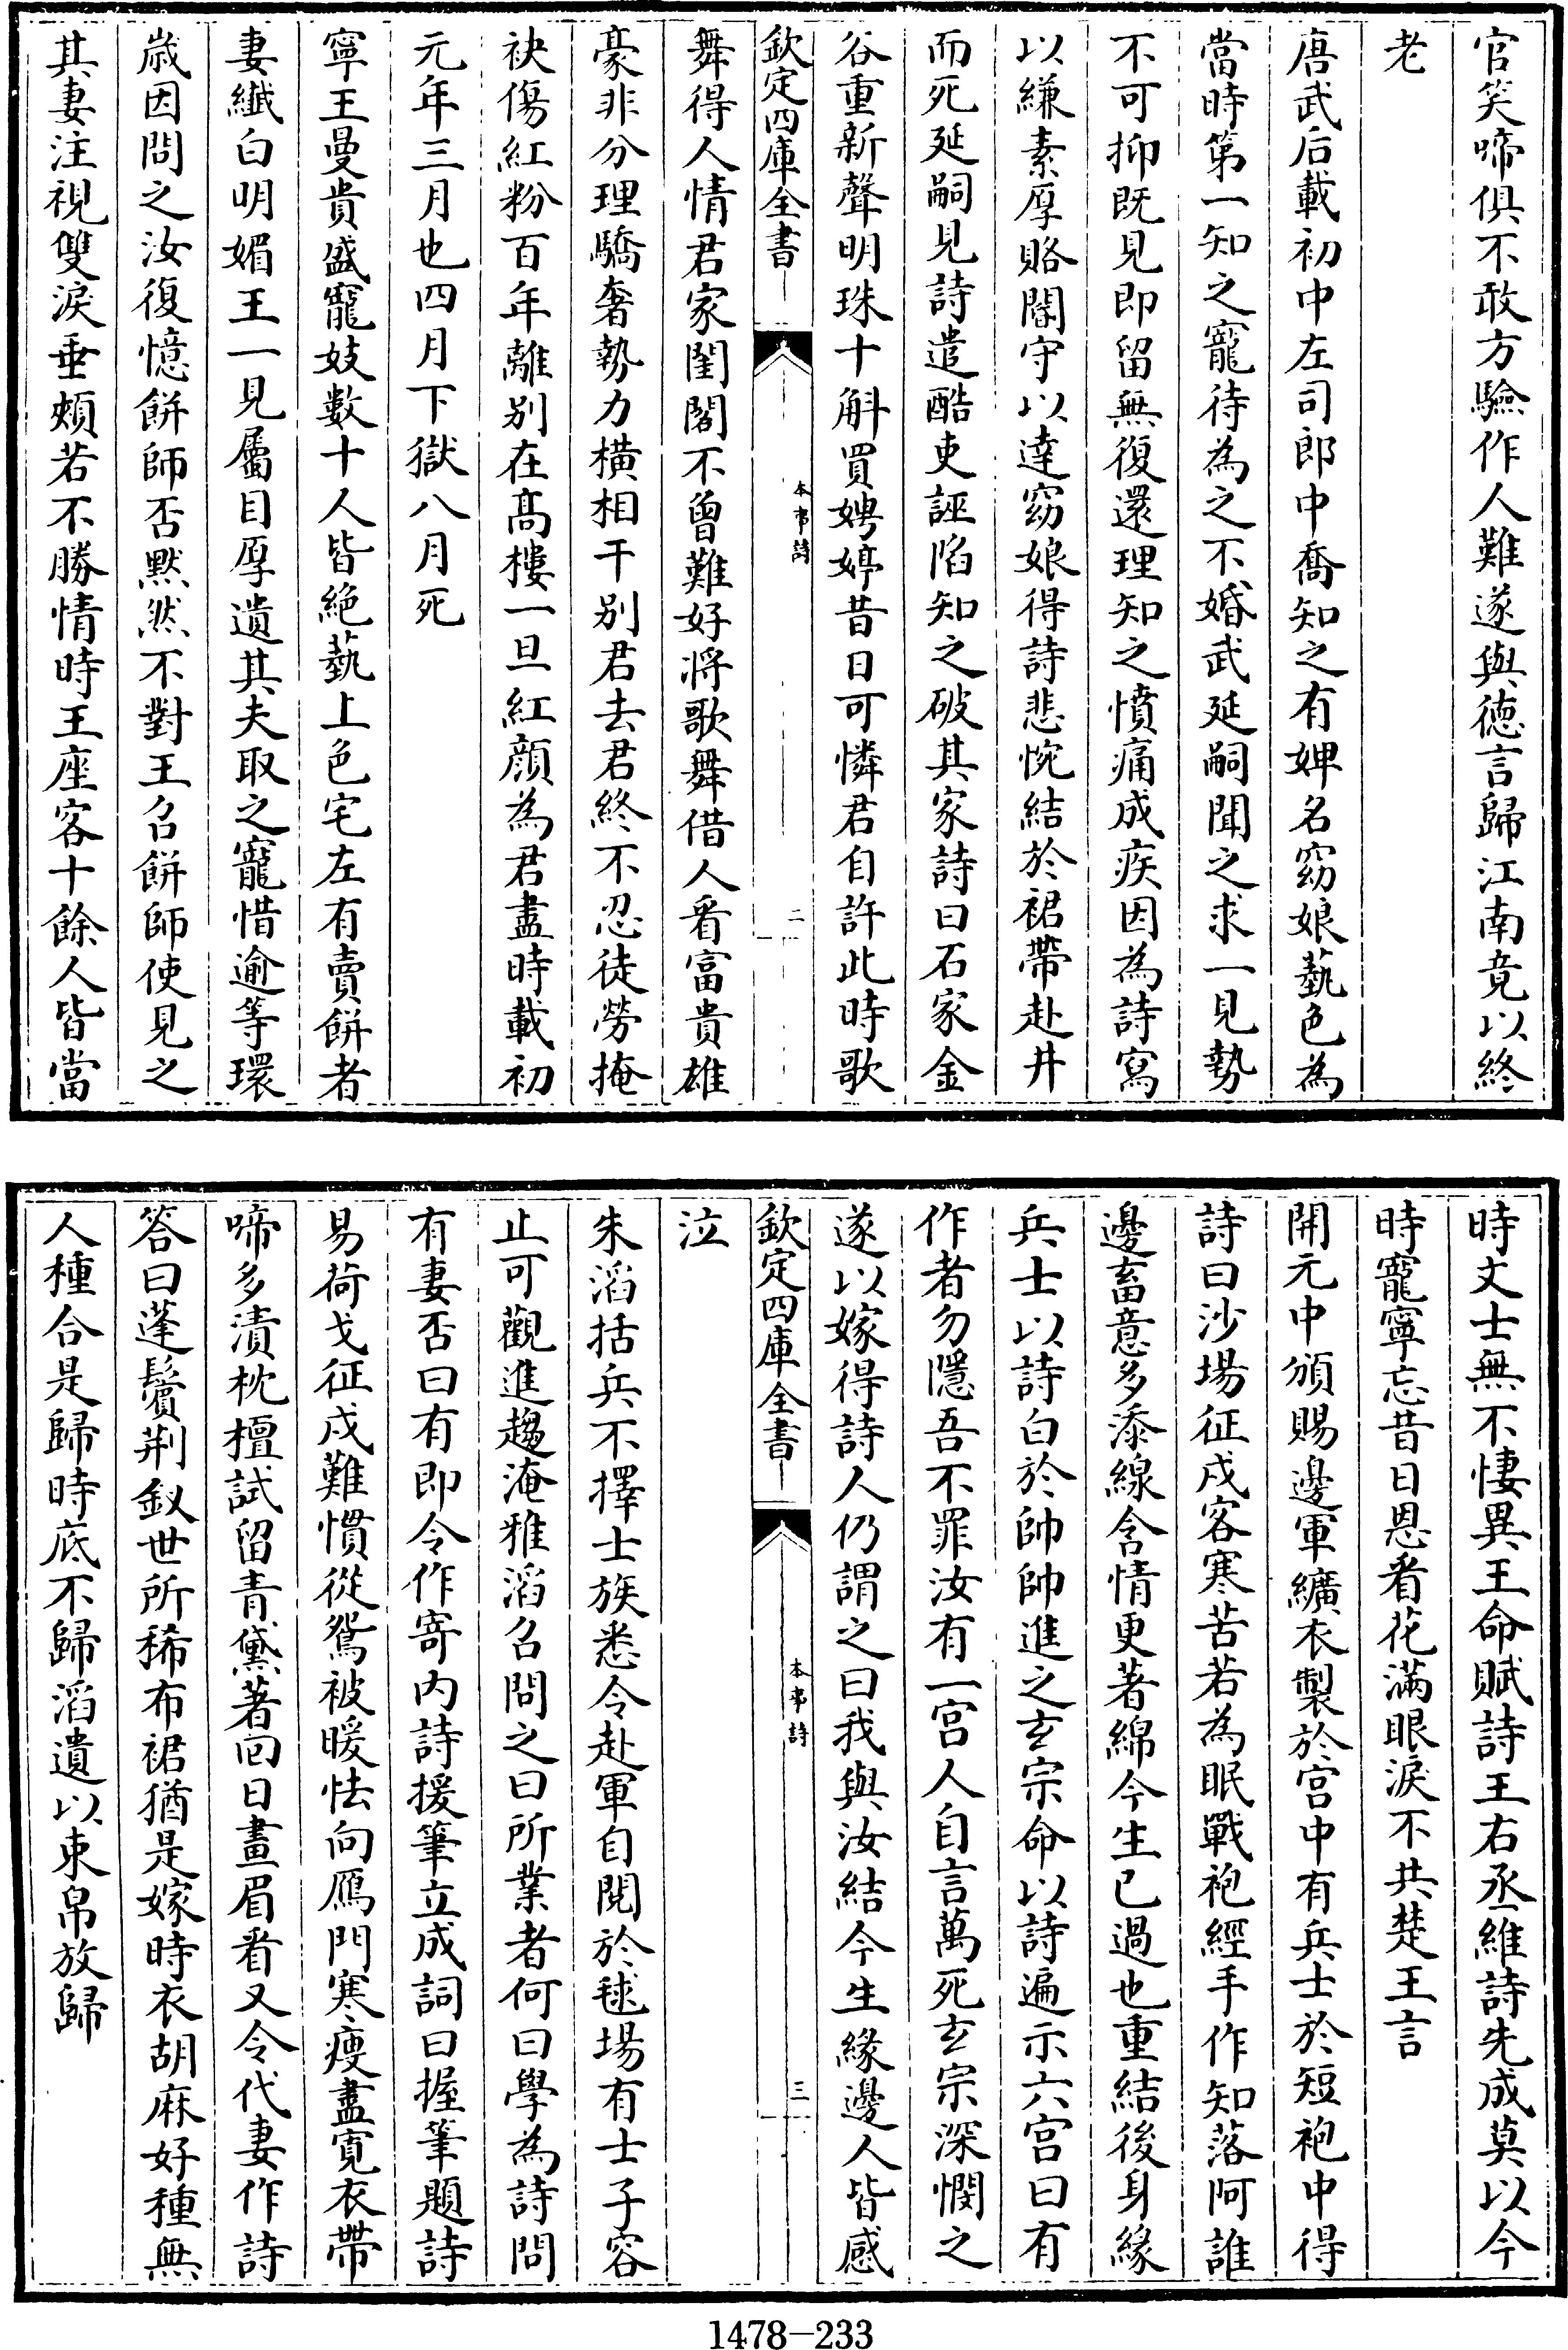 官笑啼俱不敢方驗作人難遂與德言歸江南竟以終
老
唐武后載初中左司郎中喬知之有婢名窈娘藝色為
當時第一知之寵待為之不婚武延嗣聞之求一見勢
不可抑既見即留無復還理知之憤痛成疾因為詩寫
以縑素厚賂閽守以達窈娘得詩悲惋結於裙帶赴井
而死延嗣見詩遣酷吏誣陷知之破其家詩曰石家金
谷重新聲明珠十斛買娉婷昔日可憐君自許此時歌
欽定四庫全書
本事詩
二
舞得人情君家閨閣不曾難好將歌舞借人看富貴雄
豪非分理驕奢勢力橫相干别君去君終不忍徒勞掩
袂傷紅粉百年離别在髙樓一旦紅顔為君盡時載初
元年三月也四月下獄八月死
寧王曼貴盛寵妓數十人皆絕藝上色宅左有賣餅者
妻纖白明媚王一見屬目厚遺其夫取之寵惜逾等環
歲因問之汝復憶餅師否默然不對王召餅師使見之
其妻注視雙淚垂頰若不勝情時王座客十餘人皆當
時文士無不悽異王命賦詩王右丞維詩先成莫以今
時寵寧忘昔日恩看花滿眼淚不共楚王言
開元中頒賜邊軍纊衣製於宫中有兵士於短袍中得
詩曰沙場征戍客寒苦若為眠戰袍經手作知落阿誰
邊畜意多添線含情更著綿今生已過也重結後身緣
兵士以詩白於帥帥進之玄宗命以詩遍示六宫曰有
作者勿隱吾不罪汝有一宫人自言萬死玄宗深憫之
遂以嫁得詩人仍謂之曰我與汝結今生緣邊人皆感
欽定四庫全書
本事詩
三
泣
朱滔括兵不擇士族悉令赴軍自閱於毬場有士子容
止可觀進趨淹雅滔召問之曰所業者何曰學為詩問
有妻否曰有即令作寄内詩援筆立成詞曰握筆題詩
易荷戈征戍難慣從鴛被暖怯向鴈門寒瘦盡寛衣帶
啼多漬枕檀試留青黛著囘日畫眉看又令代妻作詩
答曰蓬鬢荆釵世所稀布裙猶是嫁時衣胡麻好種無
人種合是歸時底不歸滔遺以束帛放歸
1478—233